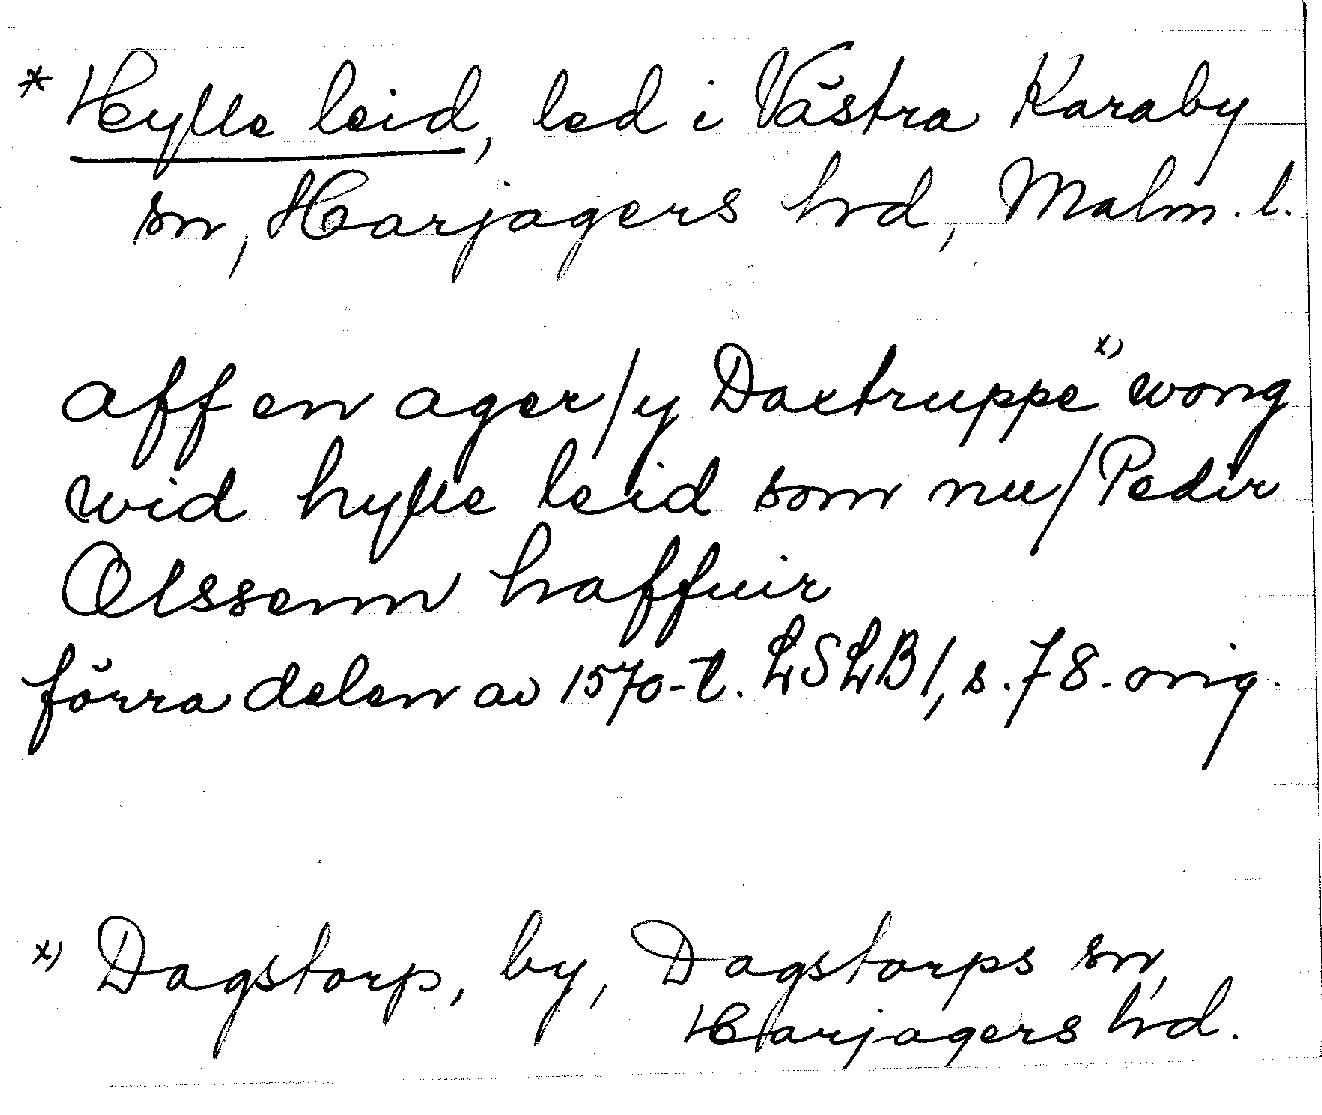 * Hylle leid, led i Västra Karaby
sn, Harjagers hrd, Malm. l.
aff en ager/y Daxtruppe x) wong
wid hylle leid som nu/Pedir
Olssenn haffuir
förra delen av 1570-t. LSLB1, s. 78. orig.
x) Dagstorp, by, Dagstorps sn,
Harjagers hrd.